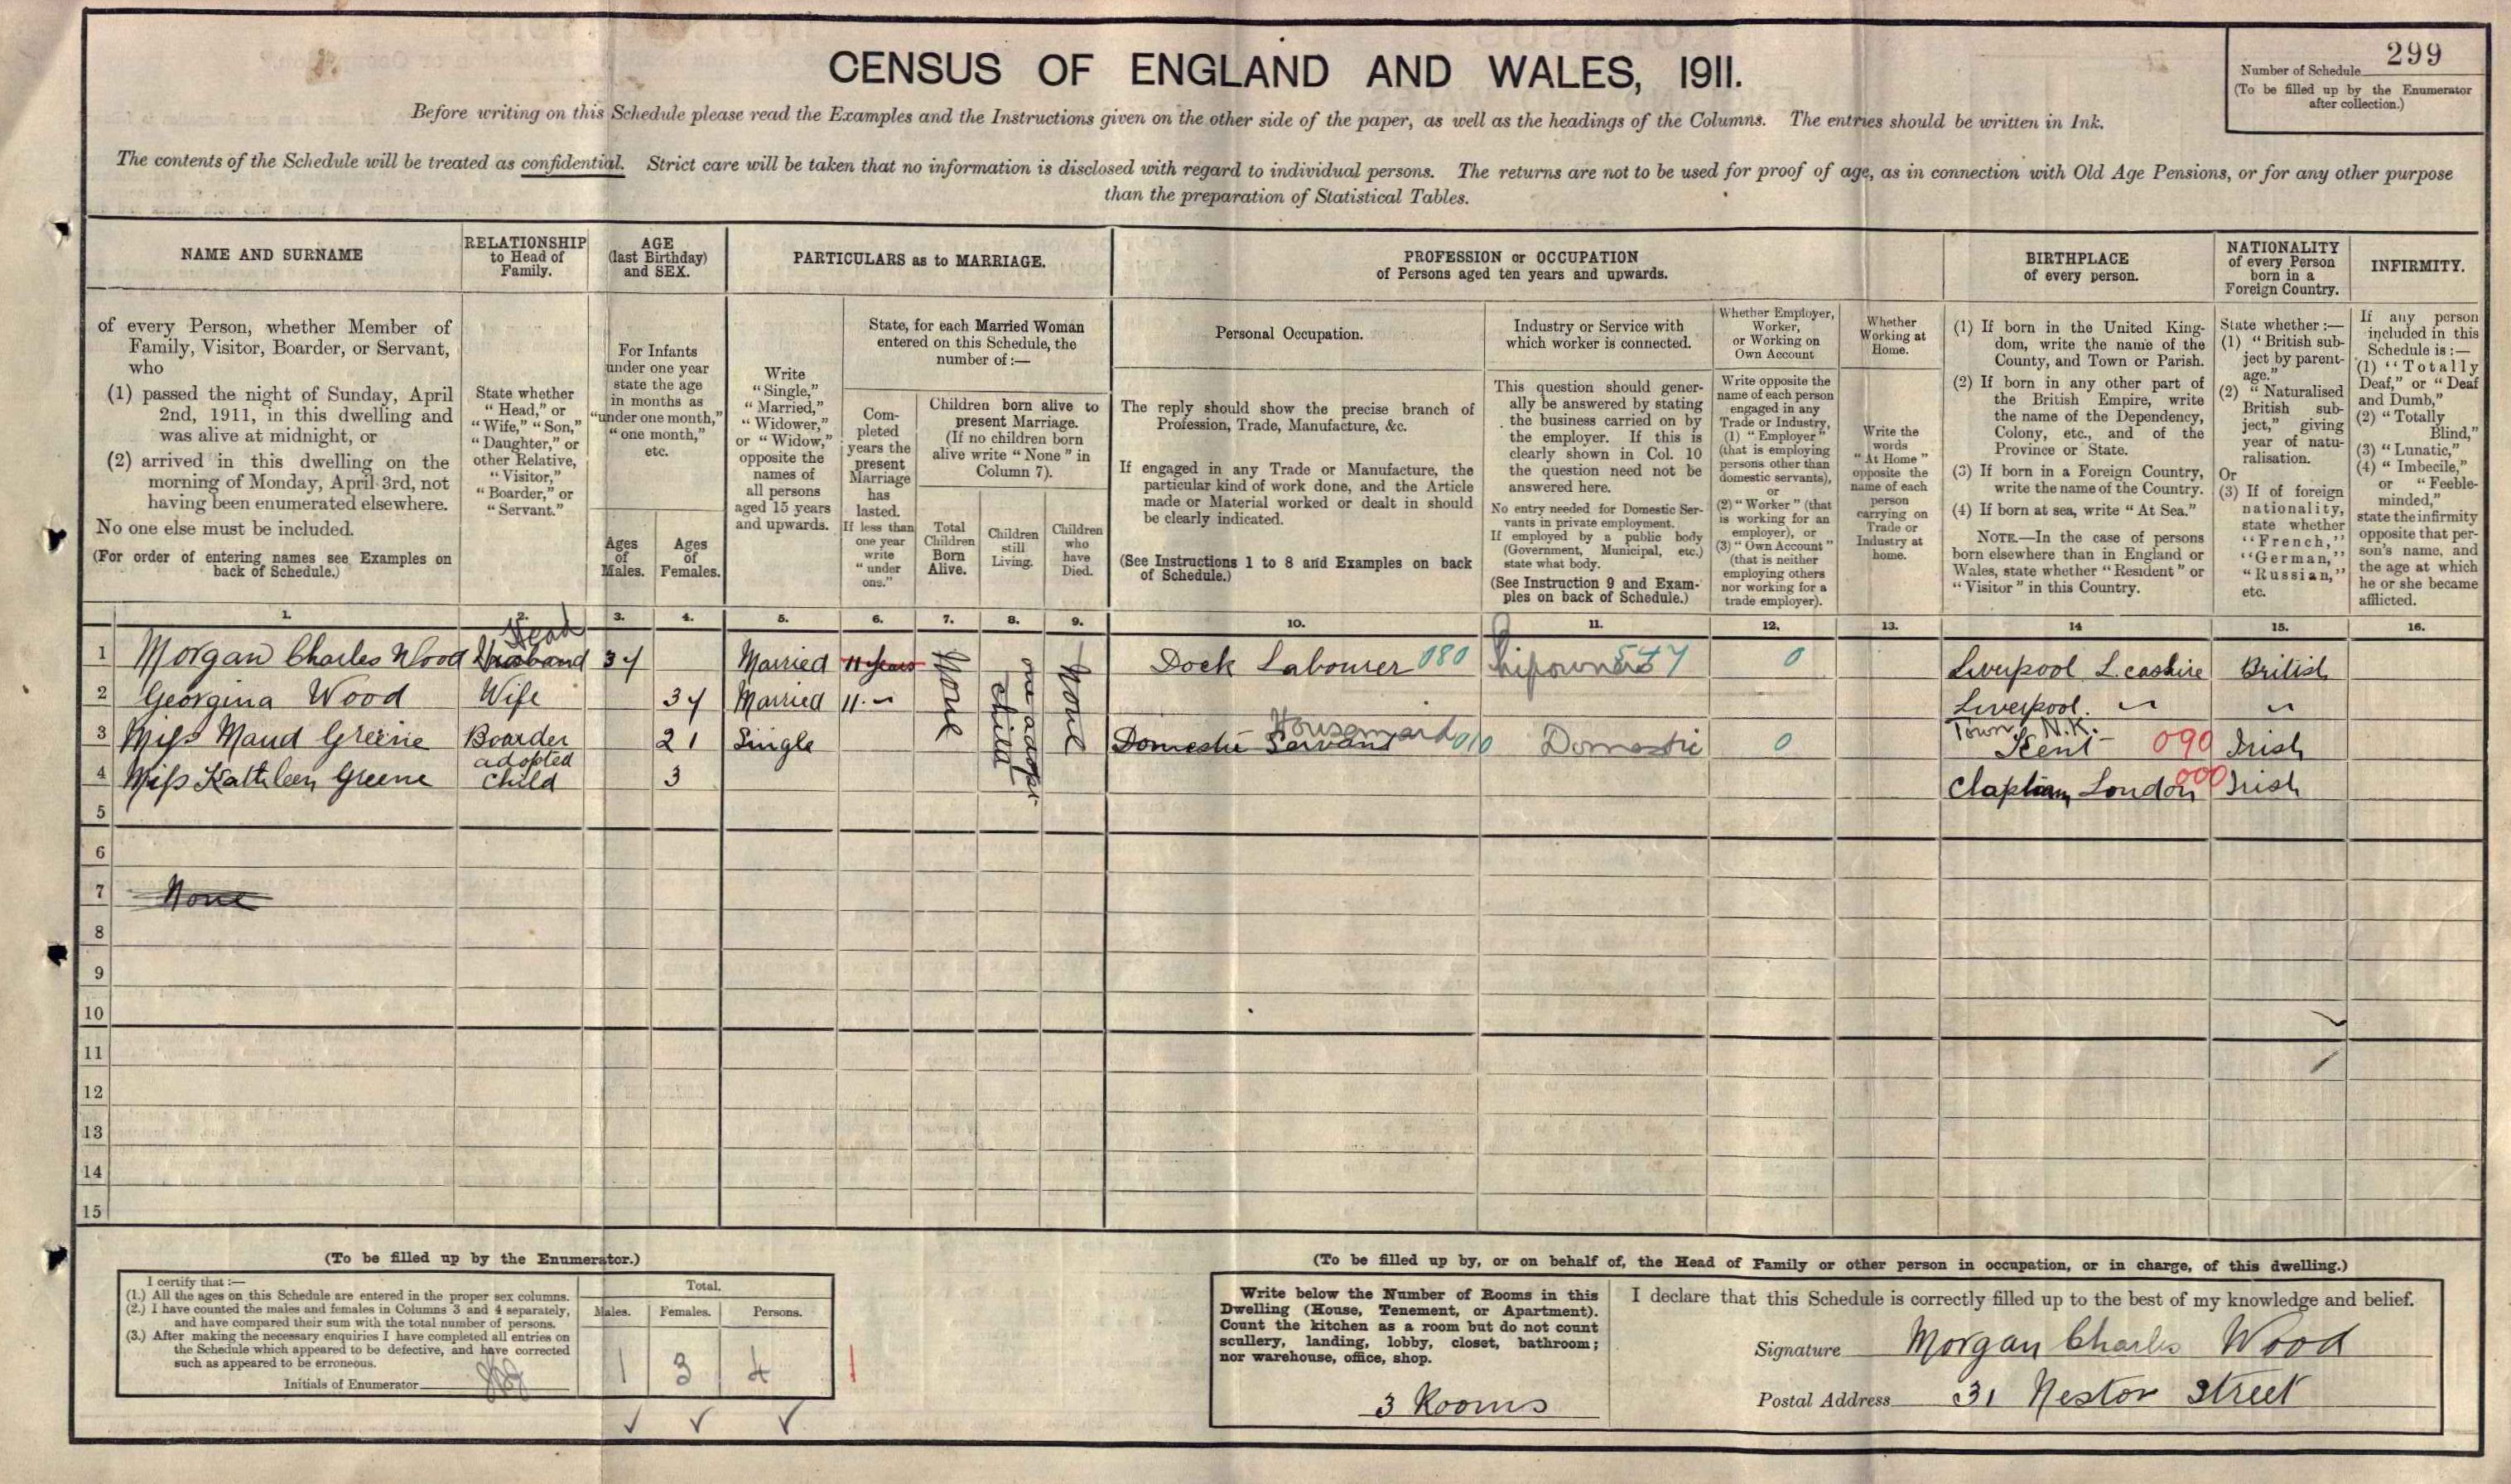 CENSUS OF ENGLAND AND WALES, 1911.
299
Number of Schedule
(To be filled up by the Enumerator
after collection.)
Before writing on this Schedule please read the Examples and the Instructions given on the other side of the paper, as well as the headings of the Columns. The entries should be written in Ink.
The contents of the Schedule will be treated as confidential. Strict care will be taken that no information is disclosed with regard to individual persons. The returns are not to be used for proof of age, as in connection with Old Age Pensions, or for any other purpose
than the preparation of Statistical Tables.
NAME AND SURNAME
of every Person, whether Member of
Family, Visitor, Boarder, or Servant,
who
(1) passed the night of Sunday, April
2nd, 1911, in this dwelling and
was alive at midnight, or
(2) arrived in this dwelling on the
morning of Monday, April 3rd, not
having been enumerated elsewhere.
No one else must be included.
(For order of entering names see Examples on
back of Schedule.)
RELATIONSHIP
to Head of
Family.
State whether
"Head," or
"Wife," "Son,"
"Daughter," or
other Relative,
"Visitor,"
"Boarder," or
"Servant."
AGE
(last Birthday)
and SEX.
For Infants
under one year
state the age
in months as
"under one month,"
"one month,"
etc.
Ages
of
Males.
Ages
of
Females.
PARTICULARS as to MARRIAGE.
Write
"Single,"
"Married,"
"Widower,"
or "Widow,"
opposite the
names of
all persons
aged 15 years
and upwards.
State, for each Married Woman
entered on this Schedule, the
number of:—
Com-
pleted
years the
present
Marriage
has
lasted.
If less than
one year
write
"under
one."
Children born alive to
present Marriage.
(If no children born
alive write "None" in
Column 7).
Total
Children
Born
Alive.
Children
still
Living.
Children
who
have
Died.
PROFESSION or OCCUPATION
of Persons aged ten years and upwards.
Personal Occupation.
The reply should show the precise branch of
Profession, Trade, Manufacture, &c.
If engaged in any Trade or Manufacture, the
particular kind of work done, and the Article
made or Material worked or dealt in should
be clearly indicated.
(See Instructions 1 to 8 and Examples on back
of Schedule.)
Industry or Service with
which worker is connected.
This question should gener-
ally be answered by stating
the business carried on by
the employer. If this is
clearly shown in Col. 10
the question need not be
answered here.
No entry needed for Domestic Ser-
vants in private employment.
If employed by a public body
(Government, Municipal, etc.)
state what body.
(See Instruction 9 and Exam-
ples on back of Schedule.)
Whether Employer,
Worker,
or Working on
Own Account
Write opposite the
name of each person
engaged in any
Trade or Industry,
(1) "Employer"
(that is employing
persons other than
domestic servants),
or
(2) "Worker" (that
is working for an
employer), or
(3) "Own Account"
(that is neither
employing others
nor working for a
trade employer).
Whether
Working at
Home.
Write the
words
"At Home"
opposite the
name of each
person
carrying on
Trade or
Industry at
home.
BIRTHPLACE
of every person.
(1) If born in the United King-
dom, write the name of the
County, and Town or Parish.
(2) If born in any other part of
the British Empire, write
the name of the Dependency,
Colony, etc., and of the
Province or State.
(3) If born in a Foreign Country,
write the name of the Country.
(4) If born at sea, write "At Sea."
NOTE.—In the case of persons
born elsewhere than in England or
Wales, state whether "Resident" or
"Visitor" in this Country.
NATIONALITY
of every Person
born in a
Foreign Country.
State whether:—
(1) "British sub-
ject by parent-
age."
(2) "Naturalised
British sub-
ject," giving
year of natu-
ralisation.
Or
(3) If of foreign
nationality,
state whether
"French,"
"German,"
"Russian,"
etc.
INFIRMITY.
If any person
included in this
Schedule is:—
(1) "Totally
Deaf," or "Deaf
and Dumb,"
(2) "Totally
Blind,"
(3) "Lunatic,"
(4) "Imbecile,"
or "Feeble-
minded,"
state the infirmity
opposite that per-
son's name, and
the age at which
he or she became
afflicted.
1. 2. 3. 4. 5. 6. 7. 8. 9. 10. 11. 12. 13. 14 15. 16.
Head
1 Morgan Charles Wood Husband 37 Married 11 years Dock Labourer 080 Shipowners 547 0 Liverpool L.cashire British
None
one adopt
child
None
2 Georgina Wood Wife 37 Married 11 Liverpool.
Housemaid
Town N.K.
3 Miss Maud Greene Boarder 21 Single Domestic Servant 010 Domestic 0 Kent 090 Irish
adopted
4 Miss Kathleen Greene child 3 Clapham London 000 Irish
5
6
7 None
8
9
10
11
12
13
14
15
(To be filled up by the Enumerator.)
I certify that:—
(1.) All the ages on this Schedule are entered in the proper sex columns.
(2.) I have counted the males and females in Columns 3 and 4 separately,
and have compared their sum with the total number of persons.
(3.) After making the necessary enquiries I have completed all entries on
the Schedule which appeared to be defective, and have corrected
such as appeared to be erroneous.
Initials of Enumerator
Total.
Males. Females. Persons.
1 3 4
(To be filled up by, or on behalf of, the Head of Family or other person in occupation, or in charge, of this dwelling.)
Write below the Number of Rooms in this
Dwelling (House, Tenement, or Apartment).
Count the kitchen as a room but do not count
scullery, landing, lobby, closet, bathroom;
nor warehouse, office, shop.
3 Rooms
I declare that this Schedule is correctly filled up to the best of my knowledge and belief.
Signature Morgan Charles Wood
Postal Address 31 Nestor Street